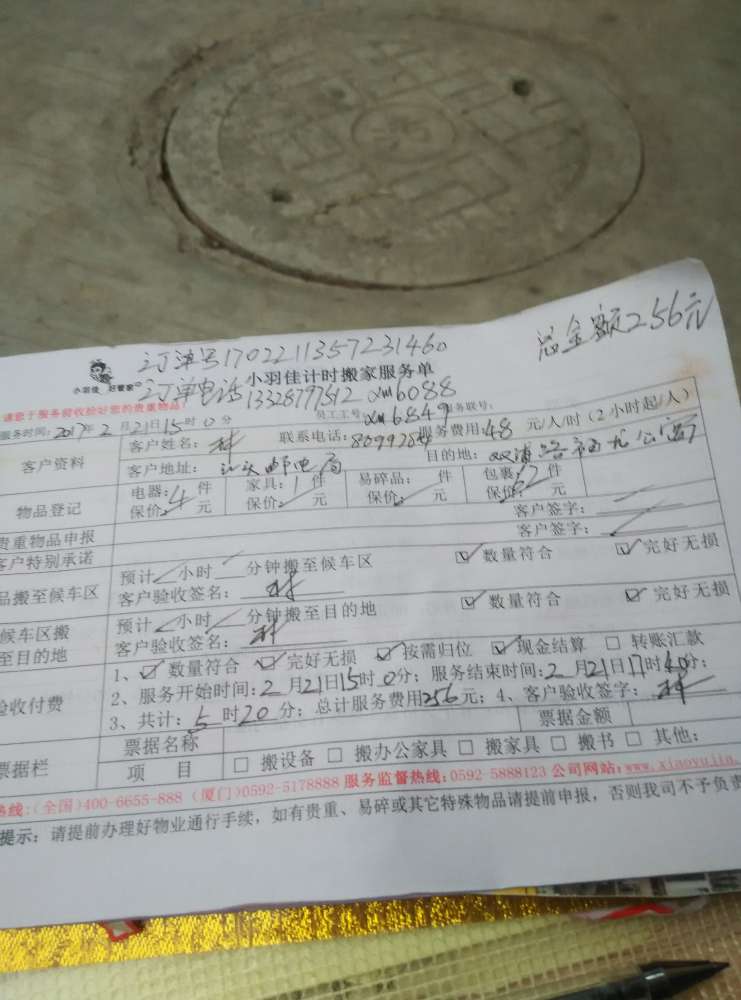 总金额256元
订单号1702211357231460
小羽佳 好管家
订单电话 小羽佳计时搬家服务单
13328797512 XM6088
请您于服务前验收验好您的贵重物品!
员工工号: XM6849 服务联号:
服务时间: 2017年2月21日15时0分
客户资料 客户姓名: 联系电话: 服务费用:48 元/人/时(2小时起/人)
客户地址: 邮电局 目的地:
物品登记 电器:4 件 家具:1件 易碎品: 件 包裹: 件
保价: 元 保价: 元 保价: 元 保价: 元
贵重物品申报 客户签字:
客户特别承诺 客户签字:
品搬至候车区 预计 小时 分钟搬至候车区 ☑数量符合 ☑完好无损
客户验收签名:
候车区搬至目的地 预计 小时 分钟搬至目的地 ☑数量符合 ☑完好无损
客户验收签名:
验收付费 1、☑数量符合 ☑完好无损 ☑按需归位 ☑现金结算 □转账汇款
2、服务开始时间:2月21日15时0分; 服务结束时间:2月21日17时40分;
3、共计:5时20分; 总计服务费用256元; 4、客户验收签字:
票据栏 票据名称 票据金额
项 目 □搬设备 □搬办公家具 □搬家具 □搬书 □其他:
热线:(全国)400-6655-888 (厦门)0592-5178888 服务监督热线:0592-5888123 公司网站:www.xiaoyujia.
提示: 请提前办理好物业通行手续, 如有贵重、易碎或其它特殊物品请提前申报, 否则我司不予负责